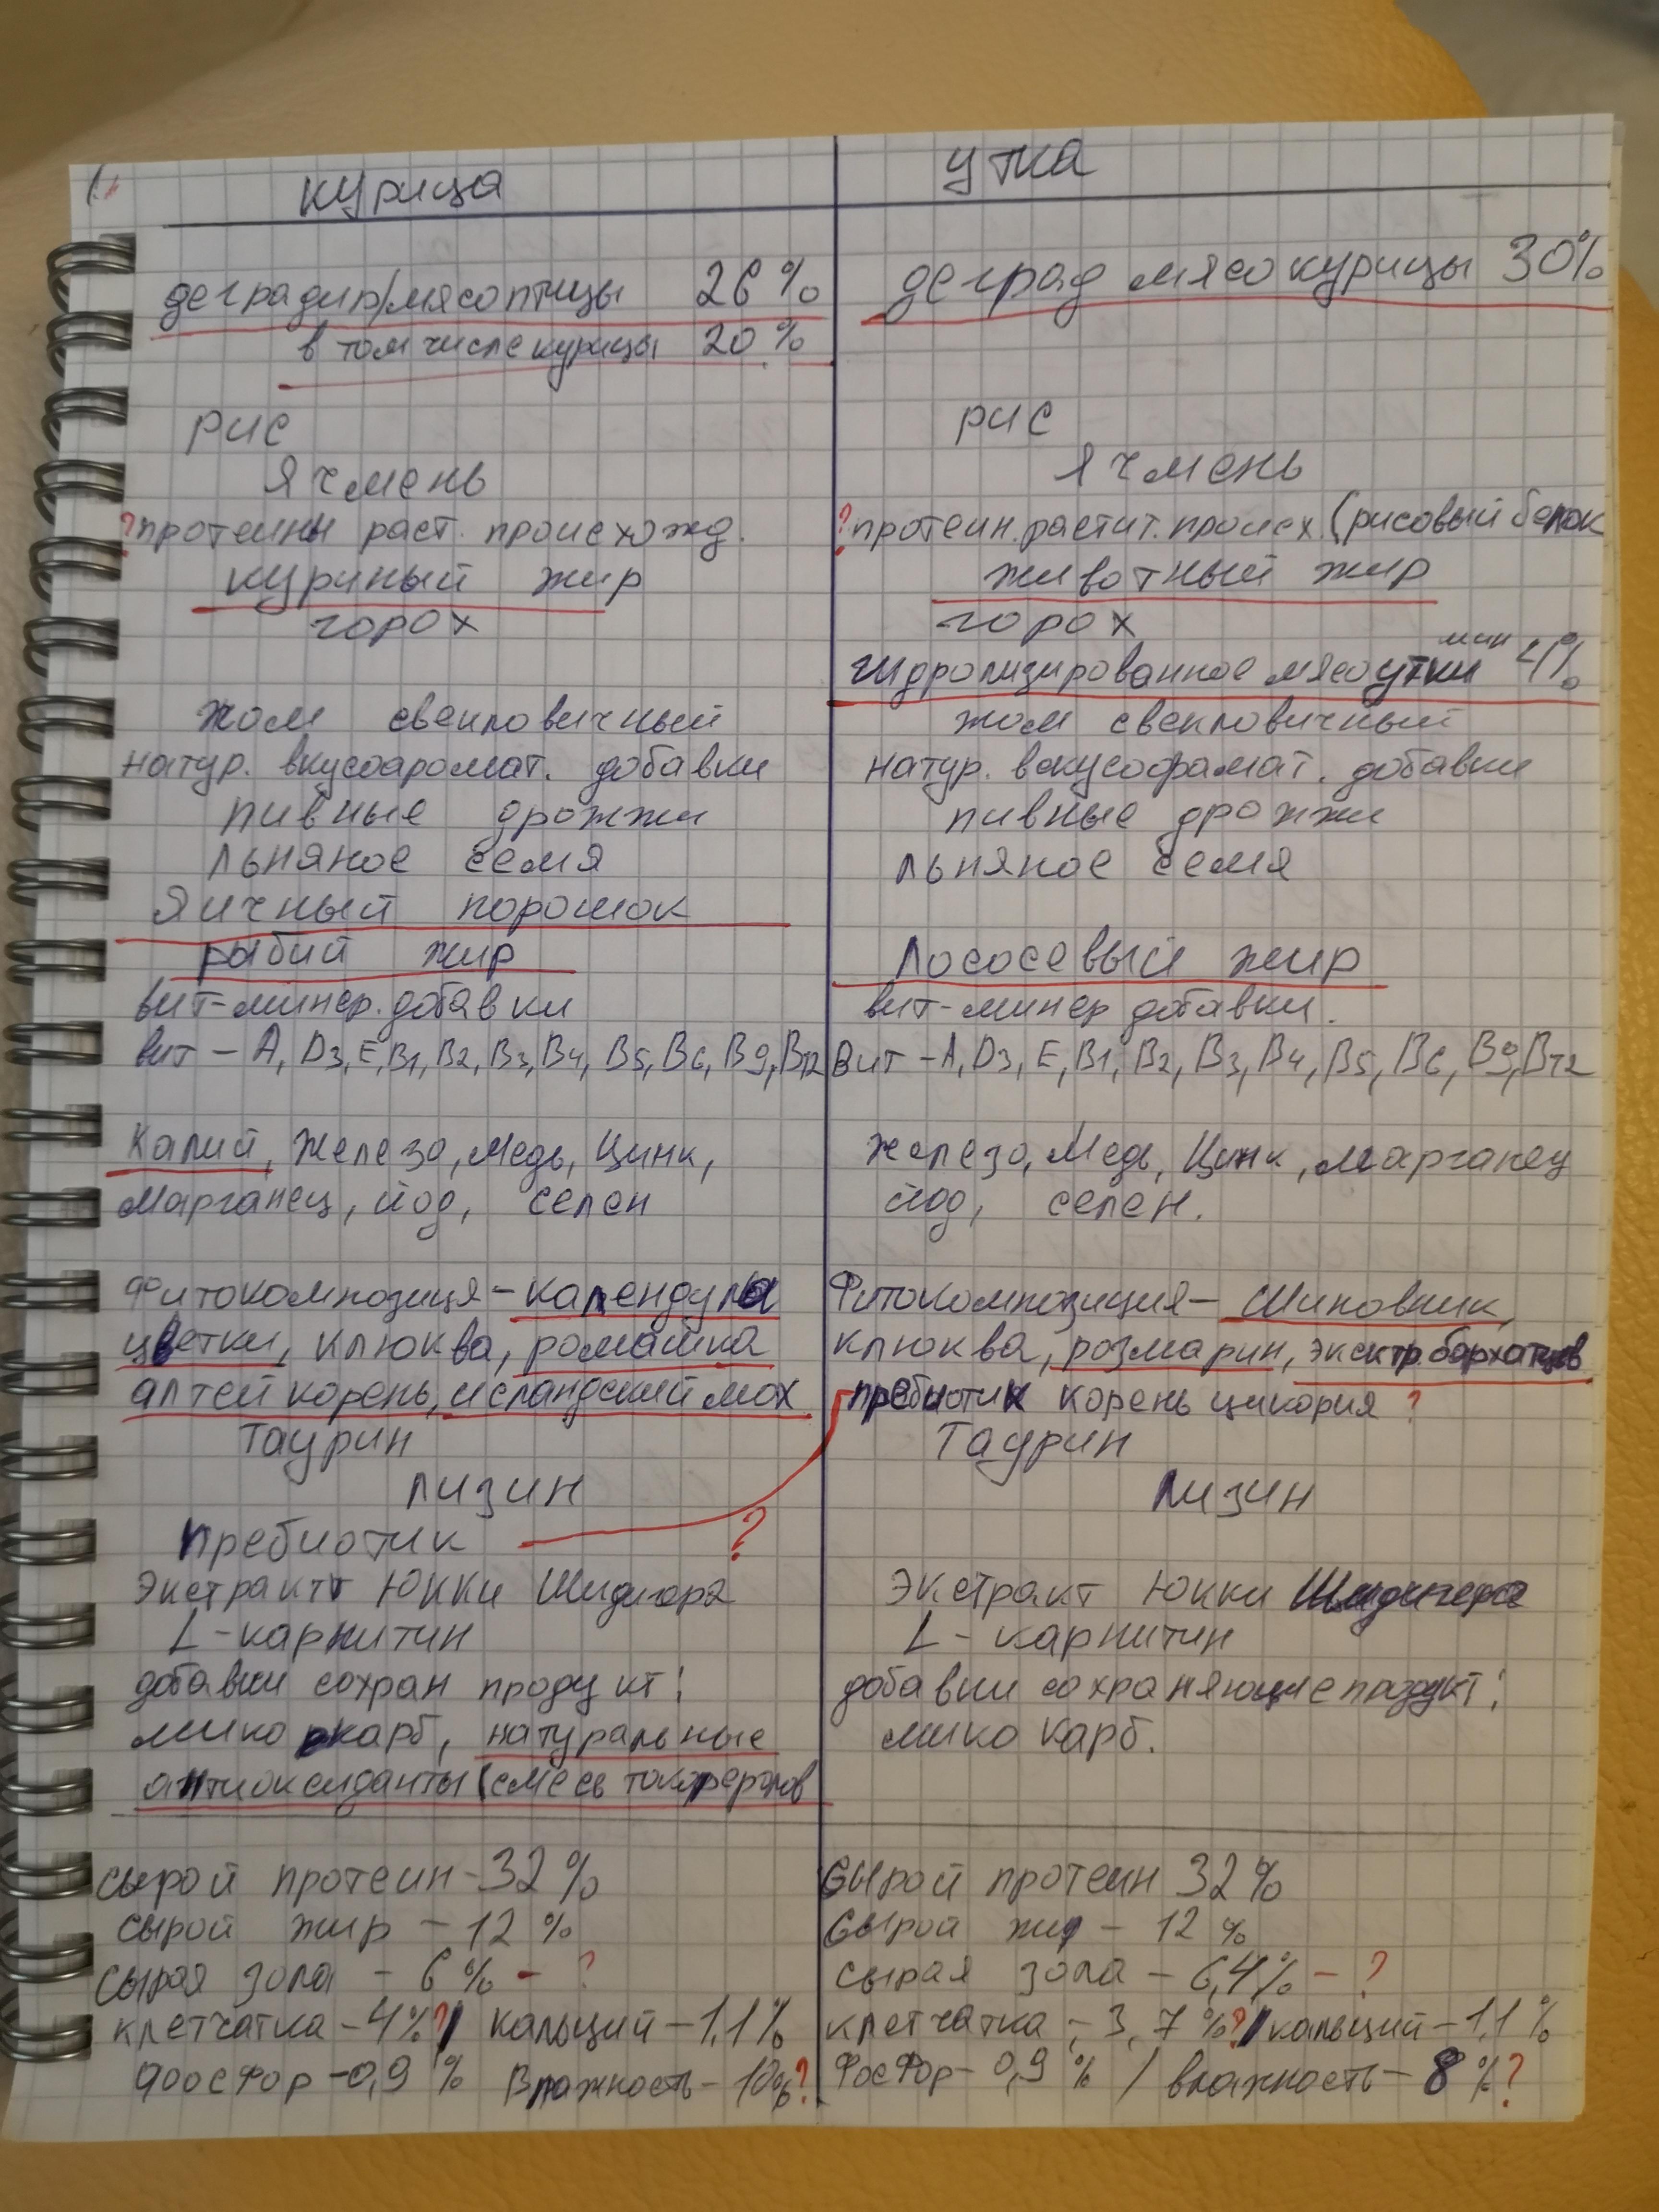 курица
деградир/мясо птицы 26%
в том числе курицы 20%
рис
Ячмень
? протеины раст. происхожд.
куриный жир
горох
жом свекловичный
натур. вкусоаромат. добавки
пивные дрожжи
льняное семя
Яичный порошок
рыбий жир
вит-минер. добавки
вит - А, D3, Е, В1, В2, В3, В4, В5, В6, В9, В12
Калий, Железо, Медь, Цинк,
Марганец, йод, селен
Фитокомпозиця - календула
цветки, клюква, ромашка
алтей корень, исландский мох
Таурин
лизин
пребиотик ?
Экстракт Юкки Шидигера
L-карнитин
добавки сохран продукт:
мико карб, натуральные
антиоксиданты (смесь токоферолов
сырой протеин - 32%
сырой жир - 12%
сырая зола - 6% - ?
клетчатка - 4%? / кальций - 1,1%
фосфор - 0,9% Влажность - 10%?
утка
деград мясо курицы 30%
рис
Ячмень
? протеин. растит. происх. (рисовый белок
животный жир
горох
гидролизированное мясо утки мин 4%
жом свекловичный
натур. вкусоаромат. добавки
пивные дрожжи
льняное семя
Лососевый жир
вит-минер добавки.
Вит - А, D3, Е, В1, В2, В3, В4, В5, В6, В9, В12
железо, Медь, Цинк, марганец
йод, селен.
Фитокомпозиция - Шиповник
клюква, розмарин, экстр. бархатцев
пребиотик корень цикория ?
Таурин
Лизин
Экстракт Юкки Шидигера
L - карнитин
добавки сохраняющие продукт:
мико карб.
Сырой протеин 32%
Сырой жир - 12%
сырая зола - 6,4% - ?
клетчатка - 3,7%? / кальций - 1,1%
Фосфор - 0,9% / влажность - 8%?